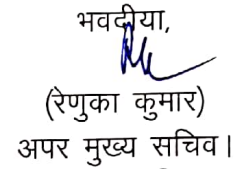 भवदीया,
(रेणुका कुमार)
अपर मुख्य सचिव।